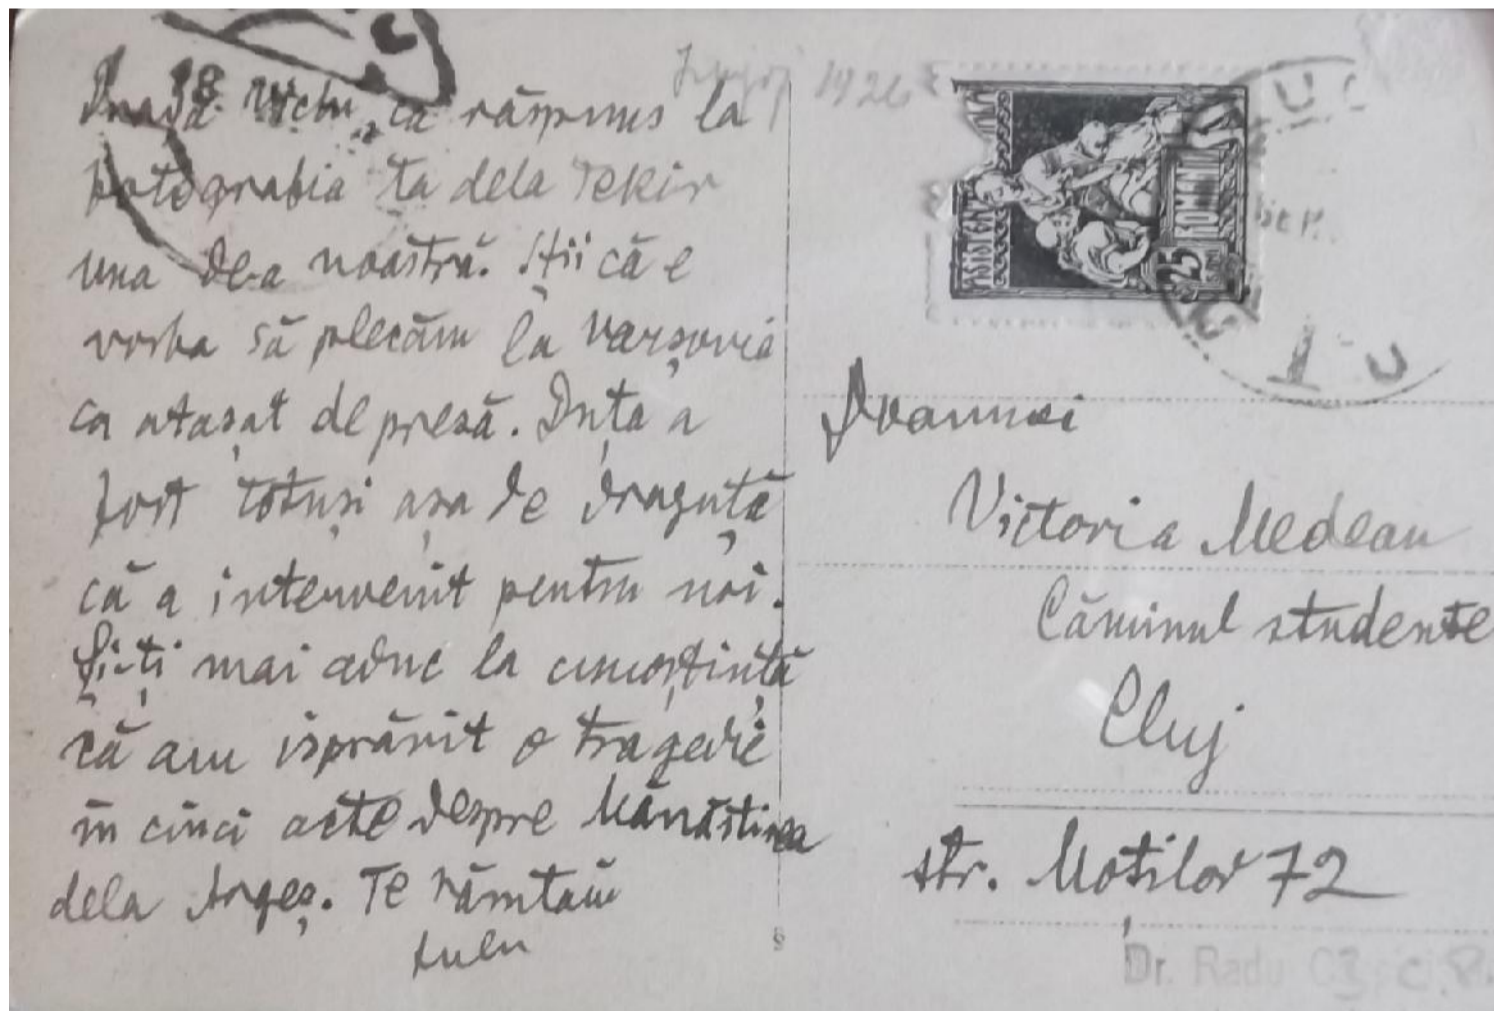 Lugoj 1926
Dragă Victu, ca răspuns la
fotografia ta dela Tekir
una de-a noastră. Știi că e
vorba să plecăm la Varșovia
ca atașat de presă. Duța a
fost totuși așa de drăguță
că a intervenit pentru noi.
Și-ți mai aduc la cunoștință
că am isprăvit o tragedie
în cinci acte despre Mănăstirea
dela Argeș. Te
Lulu
ASISTENȚA
25 BANI
CLUJ
Doamnei
Victoria Medean
Căminul studente
Cluj
str. Moților 72
Dr. Radu